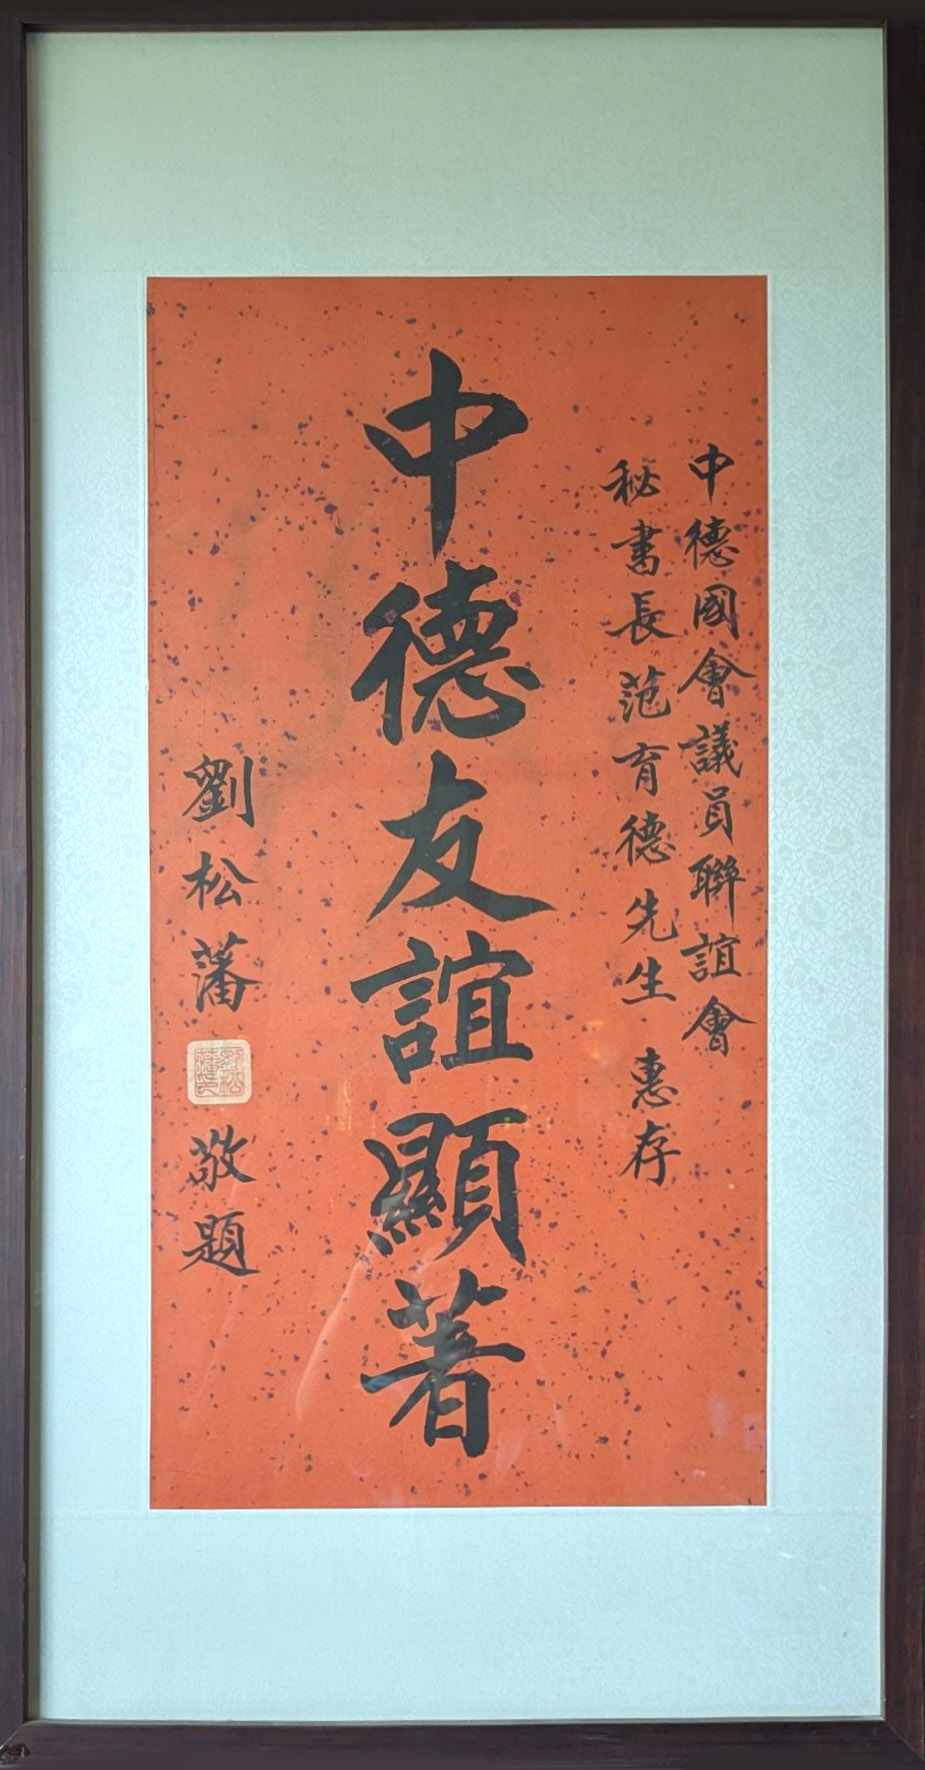 中德國會議員聯誼會
秘書長范育德先生 惠存
中德友誼顯著
劉松藩
敬題